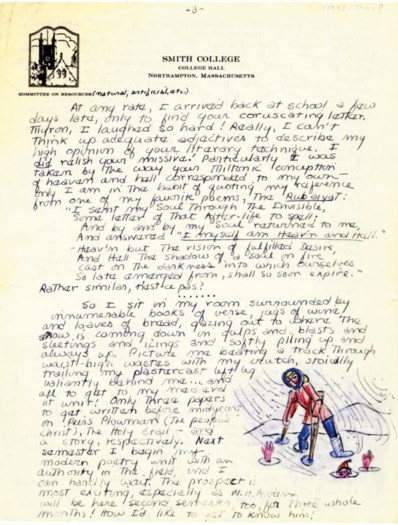 -3-
SMITH COLLEGE
COLLEGE HALL
NORTHAMPTON, MASSACHUSETTS
COMMITTEE ON RESOURCES (natural, artificial, etc)
At any rate, I arrived back at school a few
days late, only to find your coruscating letter.
Myron, I laughed so hard! Really, I can't
think up adequate adjectives to describe my
high opinion of your literary technique. I
did relish your missive. Particularly I was
taken by the way your Miltonic conception
of heaven and hell corresponded to my own—
only I am in the habit of quoting my reference
from one of my favorite poems, The Rubaiyat:
"I sent my Soul Through The Invisible,
Some letter of That After-life to spell:
And by and by my Soul returned to me,
And answered "I myself am Heav'n and Hell:"
"Heav'n but The vision of fulfilled Desire,
And Hell The shadow of a soul on fire
Cast on the darkness into which ourselves
So late emerged from, shall so soon expire."
Rather similar, n'est-ce pas?
.......
So I sit in my room surrounded by
innumerable books of verse, jugs of wine
and loaves of bread, gazing out to where The
snow is coming down in gulps and blasts and
sleetings and icings and softly piling up and
always up. Picture me beating a track Through
waist-high wastes with my crutch, stoically
trailing my plastercast left leg
valiantly behind me... and
all to get to my
lit unit! Only Three papers
to get written before midyears
on Piers Plowman (The
christ), The Holy Grail and
a story, respectively. Next
semester I begin my
modern poetry unit with an
authority in The field, and I
can hardly wait. The prospect is
most exciting, especially as W.H. Auden
will be here second semester, too, for Three whole
months! How I'd like to get to know him!